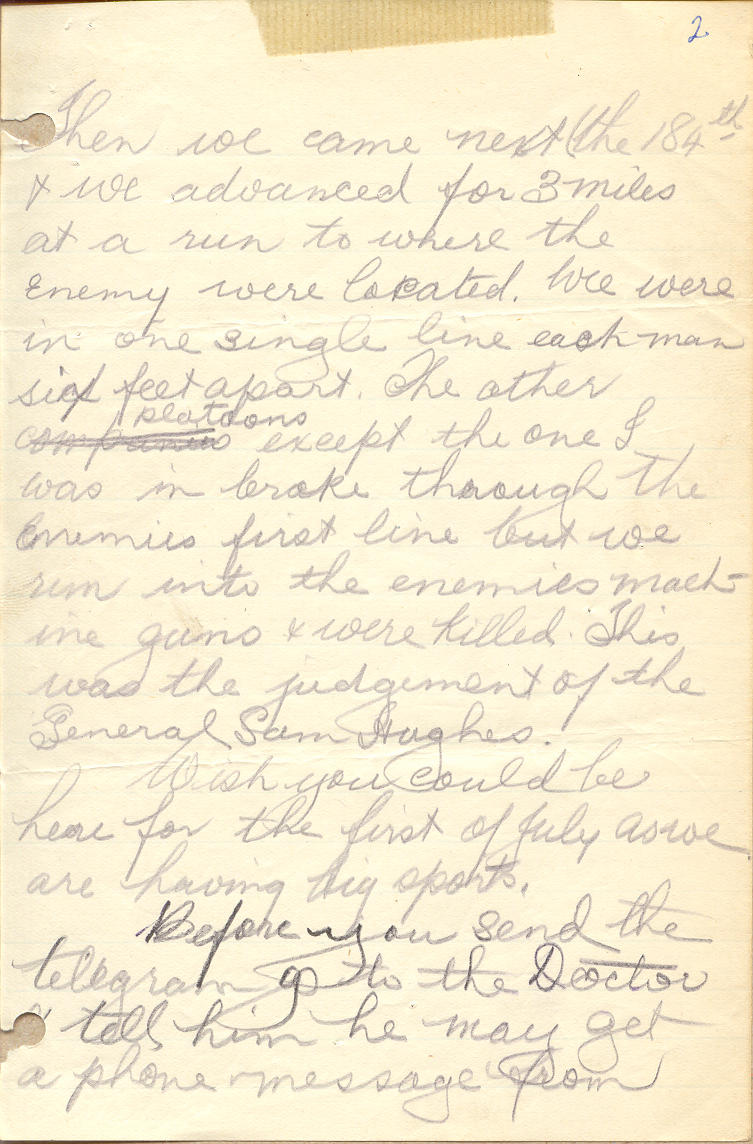 2
Then we came next (the 184th
& we advanced for 3 miles
at a run to where the
Enemy were located. We were
in one single line each man
six feet apart. The other
platoons
companies except the one I
was in broke through the
Enemies first line but we
run into the enemies mach-
ine guns & were killed. This
was the judgement of the
General Sam Hughes.
Wish you could be
here for the first of July as we
are having big sports.
Before you send the
telegram go to the Doctor
& tell him he may get
a phone message from